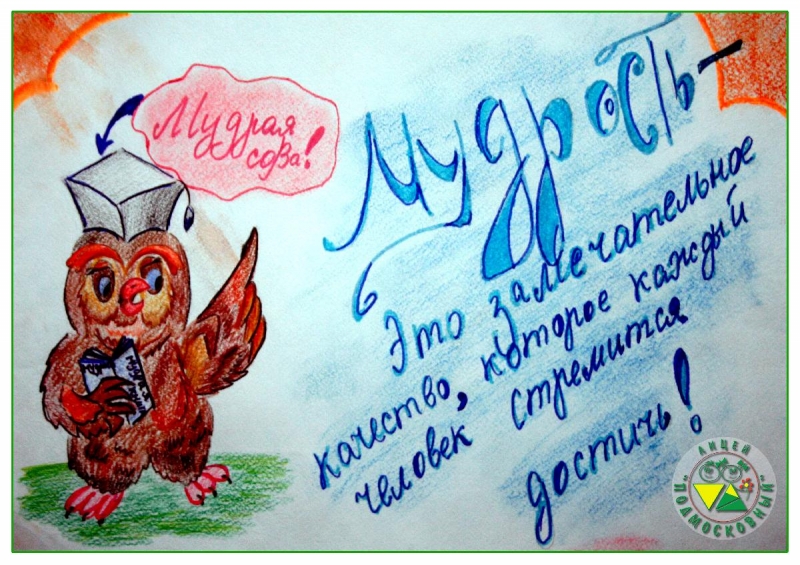 Мудрая
сова!
Мудрость –
Это замечательное
качество, которое каждый
человек стремится
достичь!
ЛИЦЕЙ
"ПОДМОСКОВНЫЙ"